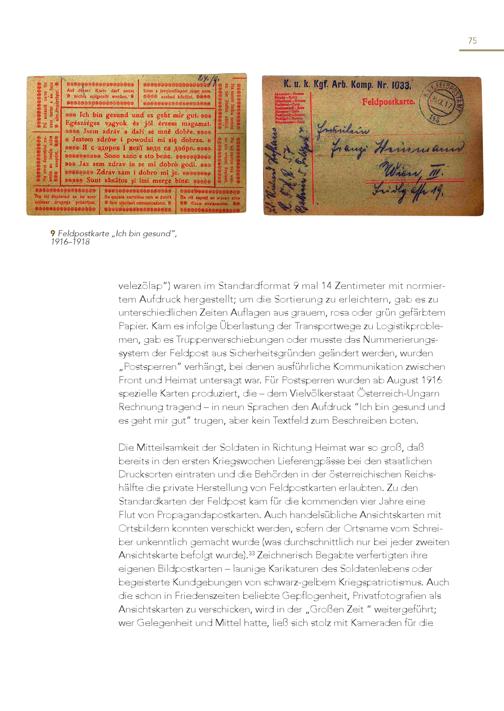 75
Auf dieser Karte darf sonst
nichts mitgeteilt werden.
—Ich bin gesund und es geht mir gut.—
Egészséges vagyok és jól érzem magamat.
Jsem zdráv a daří se mně dobře.
Jestem zdrów i powodzi mi się dobrze.
Я є здоров і мені веде ся добре.
Sono sano e sto bene.
Jaz sem zdrav in se mi dobro godi.
Zdrav sam i dobro mi je.
Sunt sănătos şi îmi merge bine.
K. u. k. Kgf. Arb. Komp. Nr. 1033.
Feldpostkarte.
Fräulein
Wien, III.
9 Feldpostkarte „Ich bin gesund",
1916–1918
velezőlap") waren im Standardformat 9 mal 14 Zentimeter mit normier-
tem Aufdruck hergestellt; um die Sortierung zu erleichtern, gab es zu
unterschiedlichen Zeiten Auflagen aus grauem, rosa oder grün gefärbtem
Papier. Kam es infolge Überlastung der Transportwege zu Logistikproble-
men, gab es Truppenverschiebungen oder musste das Nummerierungs-
system der Feldpost aus Sicherheitsgründen geändert werden, wurden
„Postsperren" verhängt, bei denen ausführliche Kommunikation zwischen
Front und Heimat untersagt war. Für Postsperren wurden ab August 1916
spezielle Karten produziert, die – dem Vielvölkerstaat Österreich-Ungarn
Rechnung tragend – in neun Sprachen den Aufdruck "Ich bin gesund und
es geht mir gut" trugen, aber kein Textfeld zum Beschreiben boten.
Die Mitteilsamkeit der Soldaten in Richtung Heimat war so groß, daß
bereits in den ersten Kriegswochen Lieferengpässe bei den staatlichen
Drucksorten eintraten und die Behörden in der österreichischen Reichs-
hälfte die private Herstellung von Feldpostkarten erlaubten. Zu den
Standardkarten der Feldpost kam für die kommenden vier Jahre eine
Flut von Propagandapostkarten. Auch handelsübliche Ansichtskarten mit
Ortsbildern konnten verschickt werden, sofern der Ortsname vom Schrei-
ber unkenntlich gemacht wurde (was durchschnittlich nur bei jeder zweiten
Ansichtskarte befolgt wurde).³³ Zeichnerisch Begabte verfertigten ihre
eigenen Bildpostkarten – launige Karikaturen des Soldatenlebens oder
begeisterte Kundgebungen von schwarz-gelbem Kriegspatriotismus. Auch
die schon in Friedenszeiten beliebte Gepflogenheit, Privatfotografien als
Ansichtskarten zu verschicken, wird in der „Großen Zeit " weitergeführt;
wer Gelegenheit und Mittel hatte, ließ sich stolz mit Kameraden für die